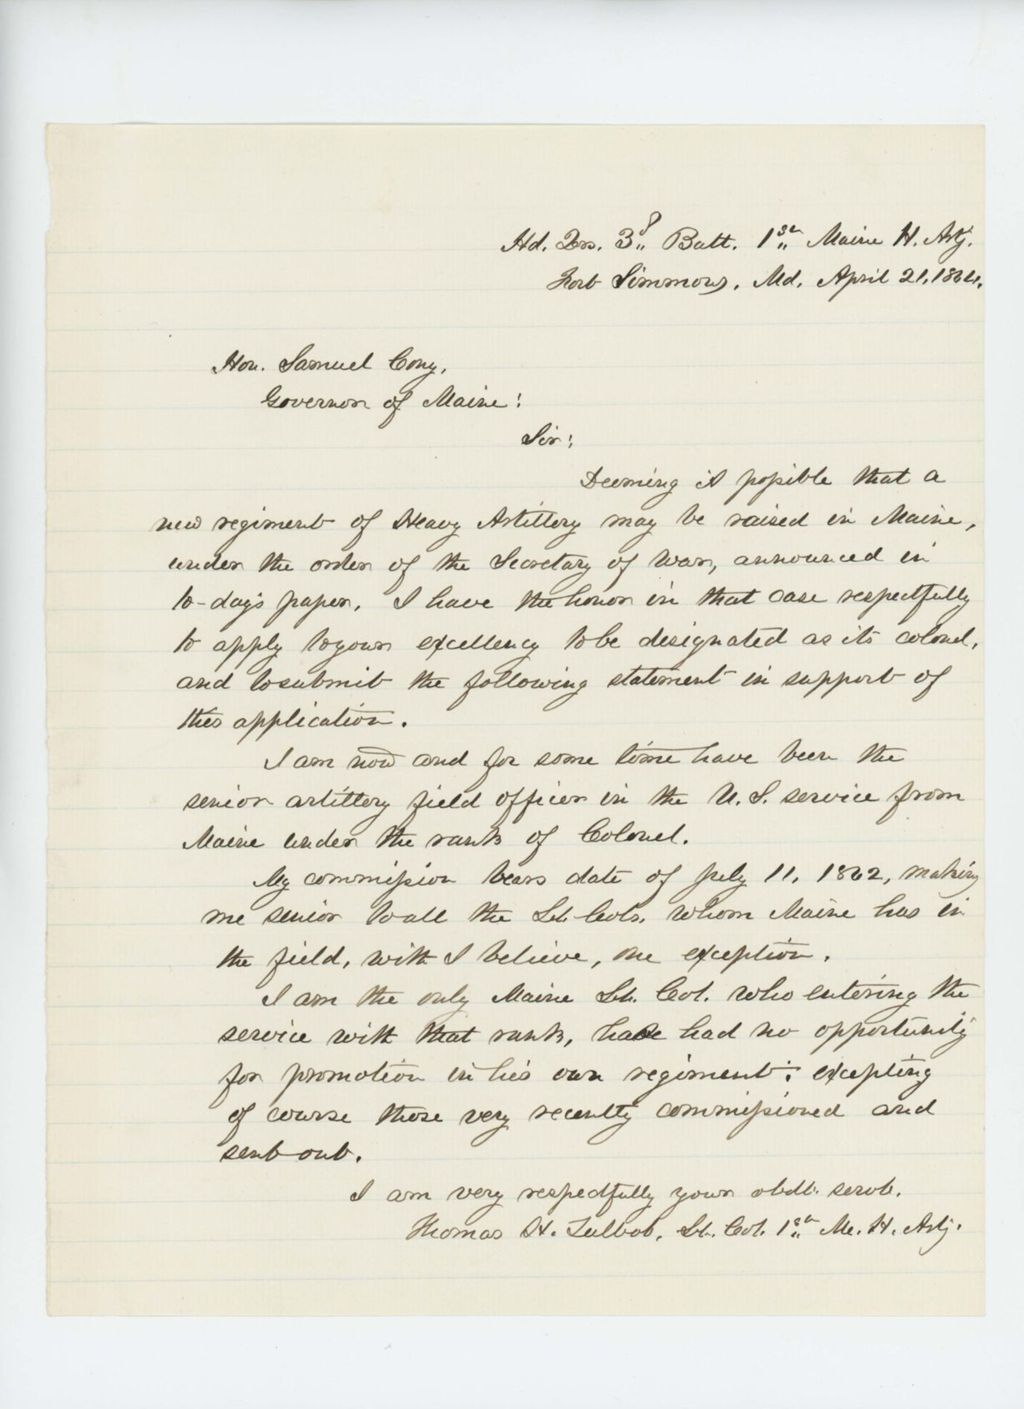 Hd. Qrs. 3d Batt. 1st Maine H. Arty.
Fort Simmons, Md. April 21, 1864.
Hon. Samuel Cony,
Governor of Maine:
Sir:
Deeming it possible that a
new regiment of Heavy Artillery may be raised in Maine,
under the order of the Secretary of War, announced in
to-day's paper, I have the honor in that case respectfully
to apply to your excellency to be designated as its colonel,
and to submit the following statement in support of
this application.
I am now and for some time have been the
senior artillery field officer in the U. S. service from
Maine under the rank of Colonel.
My commission bears date of July 11, 1862, making
me senior to all the Lt. Cols. whom Maine has in
the field, with I believe, one exception.
I am the only Maine Lt. Col. who entering the
service with that rank, have had no opportunity
for promotion in his own regiment; excepting
of course those very recently commissioned and
sent out.
I am very respectfully your obdt. servt.
Thomas H. Talbot, Lt. Col. 1st Me. H. Arty.